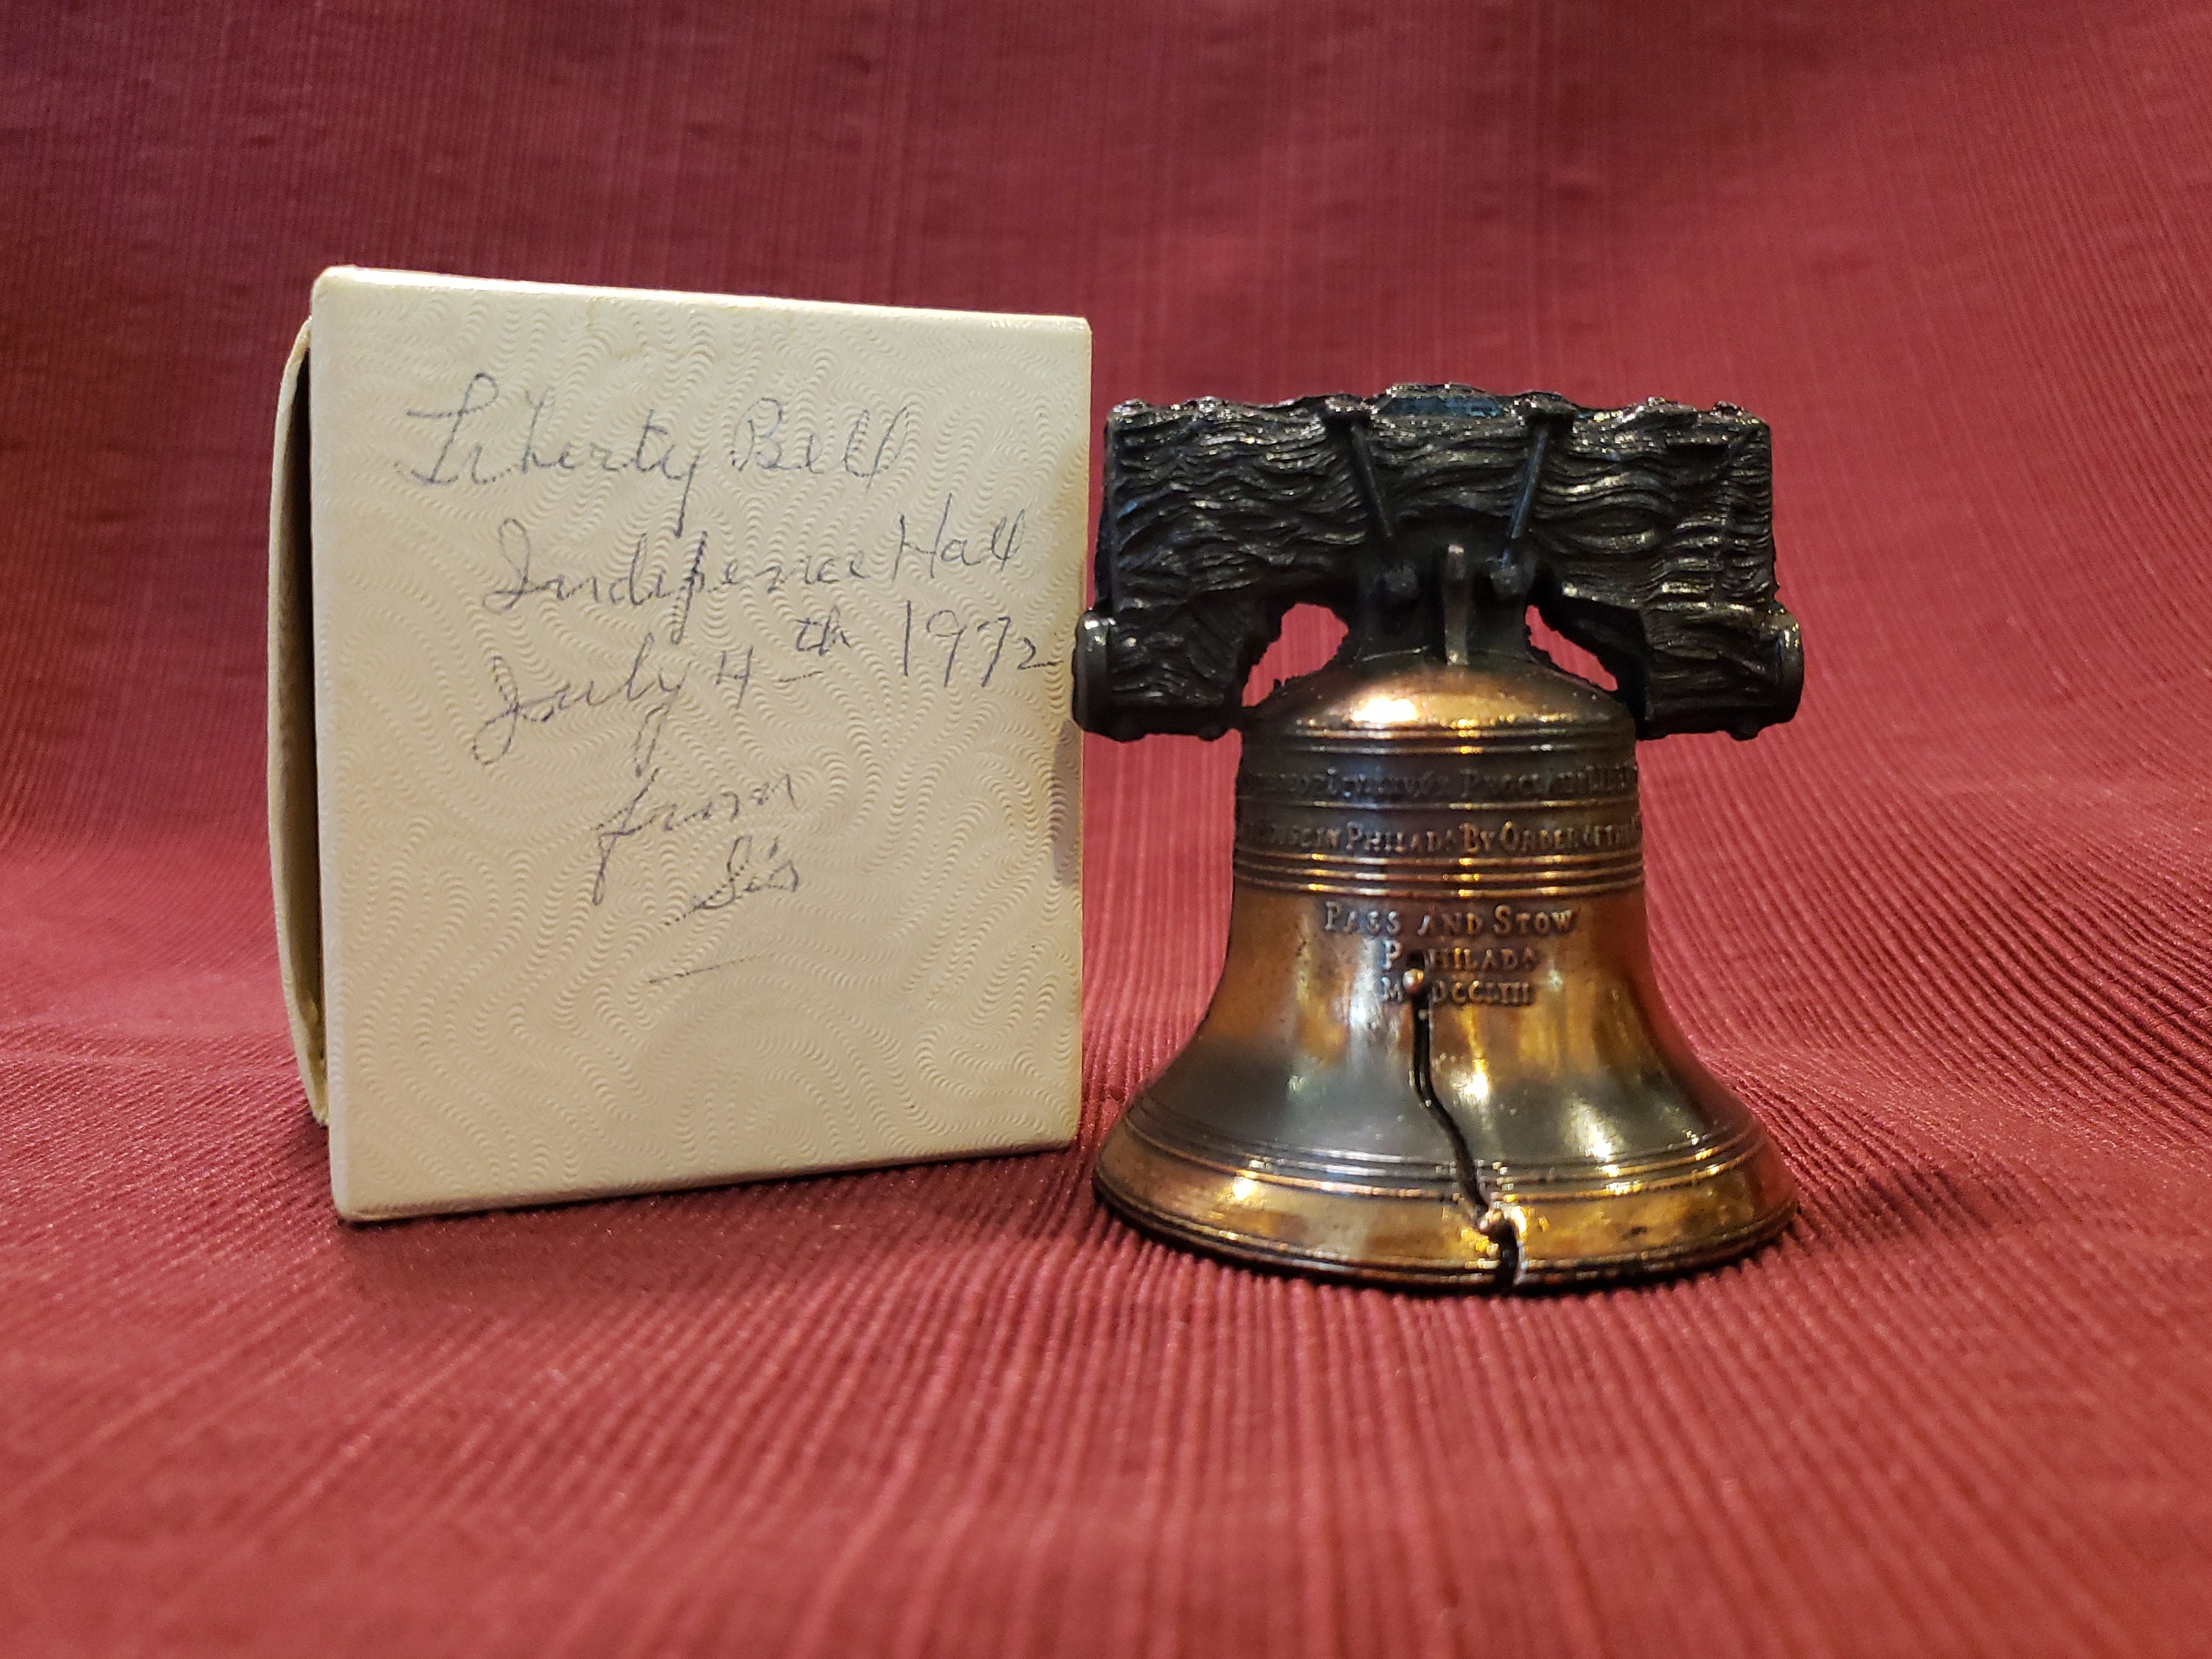 Liberty Bell
Indipence Hall
July 4th 1972
from
Sis
PROCLAIM
IN PHILADA BY ORDER OF THE
PASS AND STOW
PHILADA
MDCCLIII